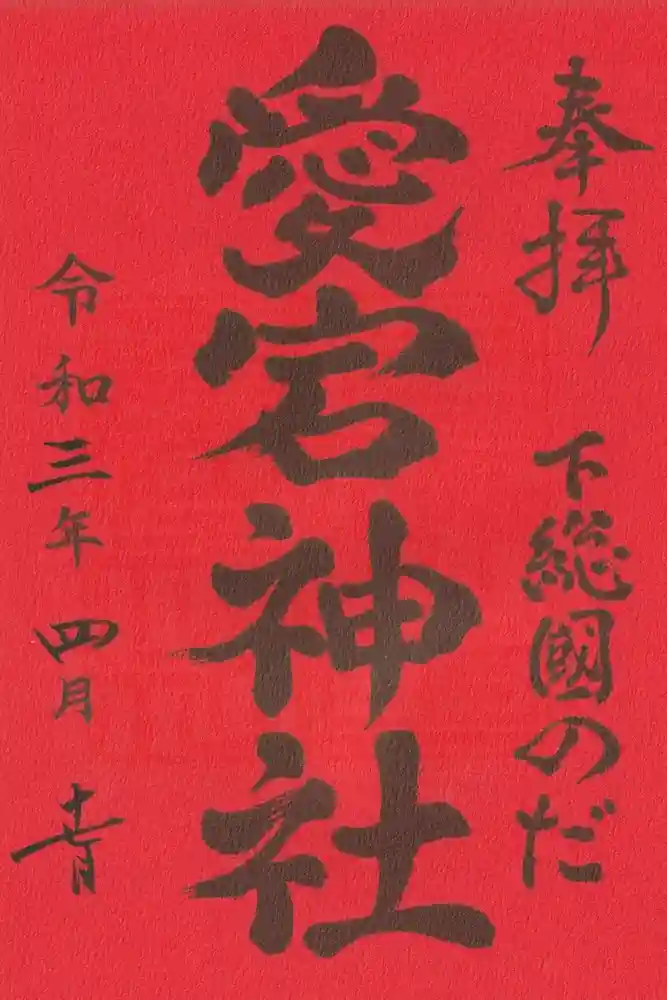 奉拝 下総國のだ
愛宕神社
令和三年 四月 十七日